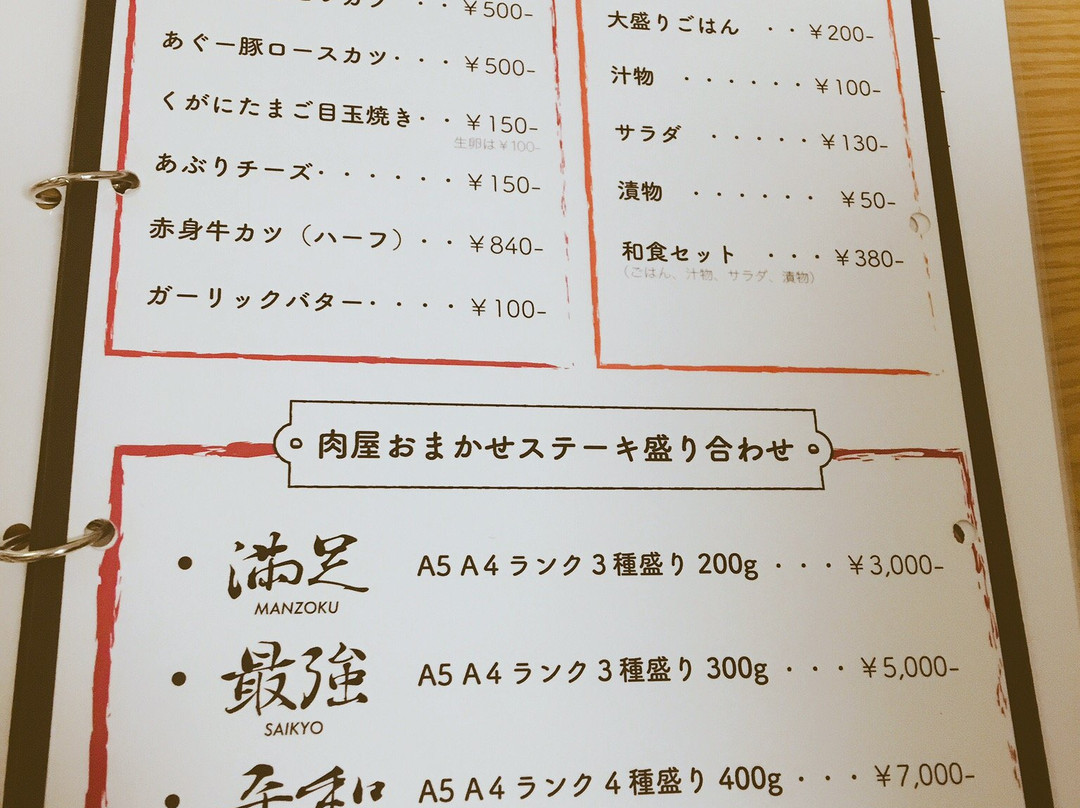 ・・¥500-
あぐー豚ロースカツ・・・¥500-
くがにたまご目玉焼き・・¥150-
生卵は¥100-
あぶりチーズ・・・・・・¥150-
赤身牛カツ（ハーフ）・・¥840-
ガーリックバター・・・・¥100-
大盛りごはん ・・¥200-
汁物 ・・・・・・¥100-
サラダ ・・・・・¥130-
漬物 ・・・・・・ ¥50-
和食セット ・・・¥380-
（ごはん、汁物、サラダ、漬物）
肉屋おまかせステーキ盛り合わせ
• 満足 A5 A4 ランク3種盛り 200g ・・・¥3,000-
MANZOKU
• 最強 A5 A4 ランク3種盛り 300g ・・・¥5,000-
SAIKYO
• 平和 A5 A4 ランク4種盛り 400g ・・・¥7,000-